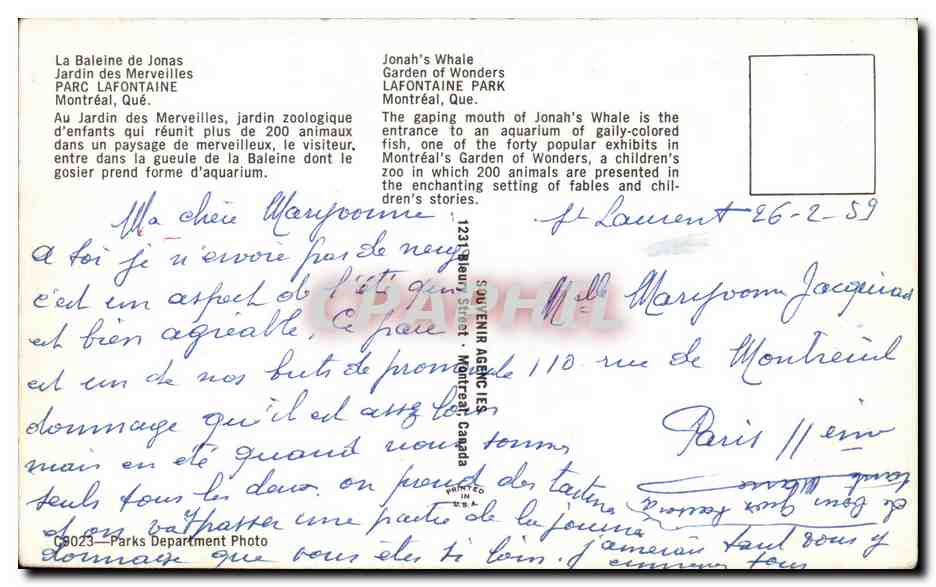 La Baleine de Jonas
Jardin des Merveilles
PARC LAFONTAINE
Montréal, Qué.
Au Jardin des Merveilles, jardin zoologique
d'enfants qui réunit plus de 200 animaux
dans un paysage de merveilleux, le visiteur,
entre dans la gueule de la Baleine dont le
gosier prend forme d'aquarium.
Jonah's Whale
Garden of Wonders
LAFONTAINE PARK
Montréal, Que.
The gaping mouth of Jonah's Whale is the
entrance to an aquarium of gaily-colored
fish, one of the forty popular exhibits in
Montréal's Garden of Wonders, a children's
zoo in which 200 animals are presented in
the enchanting setting of fables and chil-
dren's stories.
St Laurent 26-2-59
Ma chère Maryvonne
a toi je n'envoie pas de neige
c'est un aspect de l'été qui
est bien agréable, ce parc
est un de nos buts de promenade
dommage qu'il est assez loin
mais en été quand nous sommes
seuls tous les deux on prend des tartines
et on va passer une partie de la journée
dommage que vous êtes si loin. j'aimerais tant vous y
emmener tous
Melle Maryvonne
110 rue de Montreuil
Paris 11ème
SOUVENIR AGENCIES
1231 Bleury Street · Montreal, Canada
PRINTED
IN
U.S.A.
C9023—Parks Department Photo
CPAPHIL